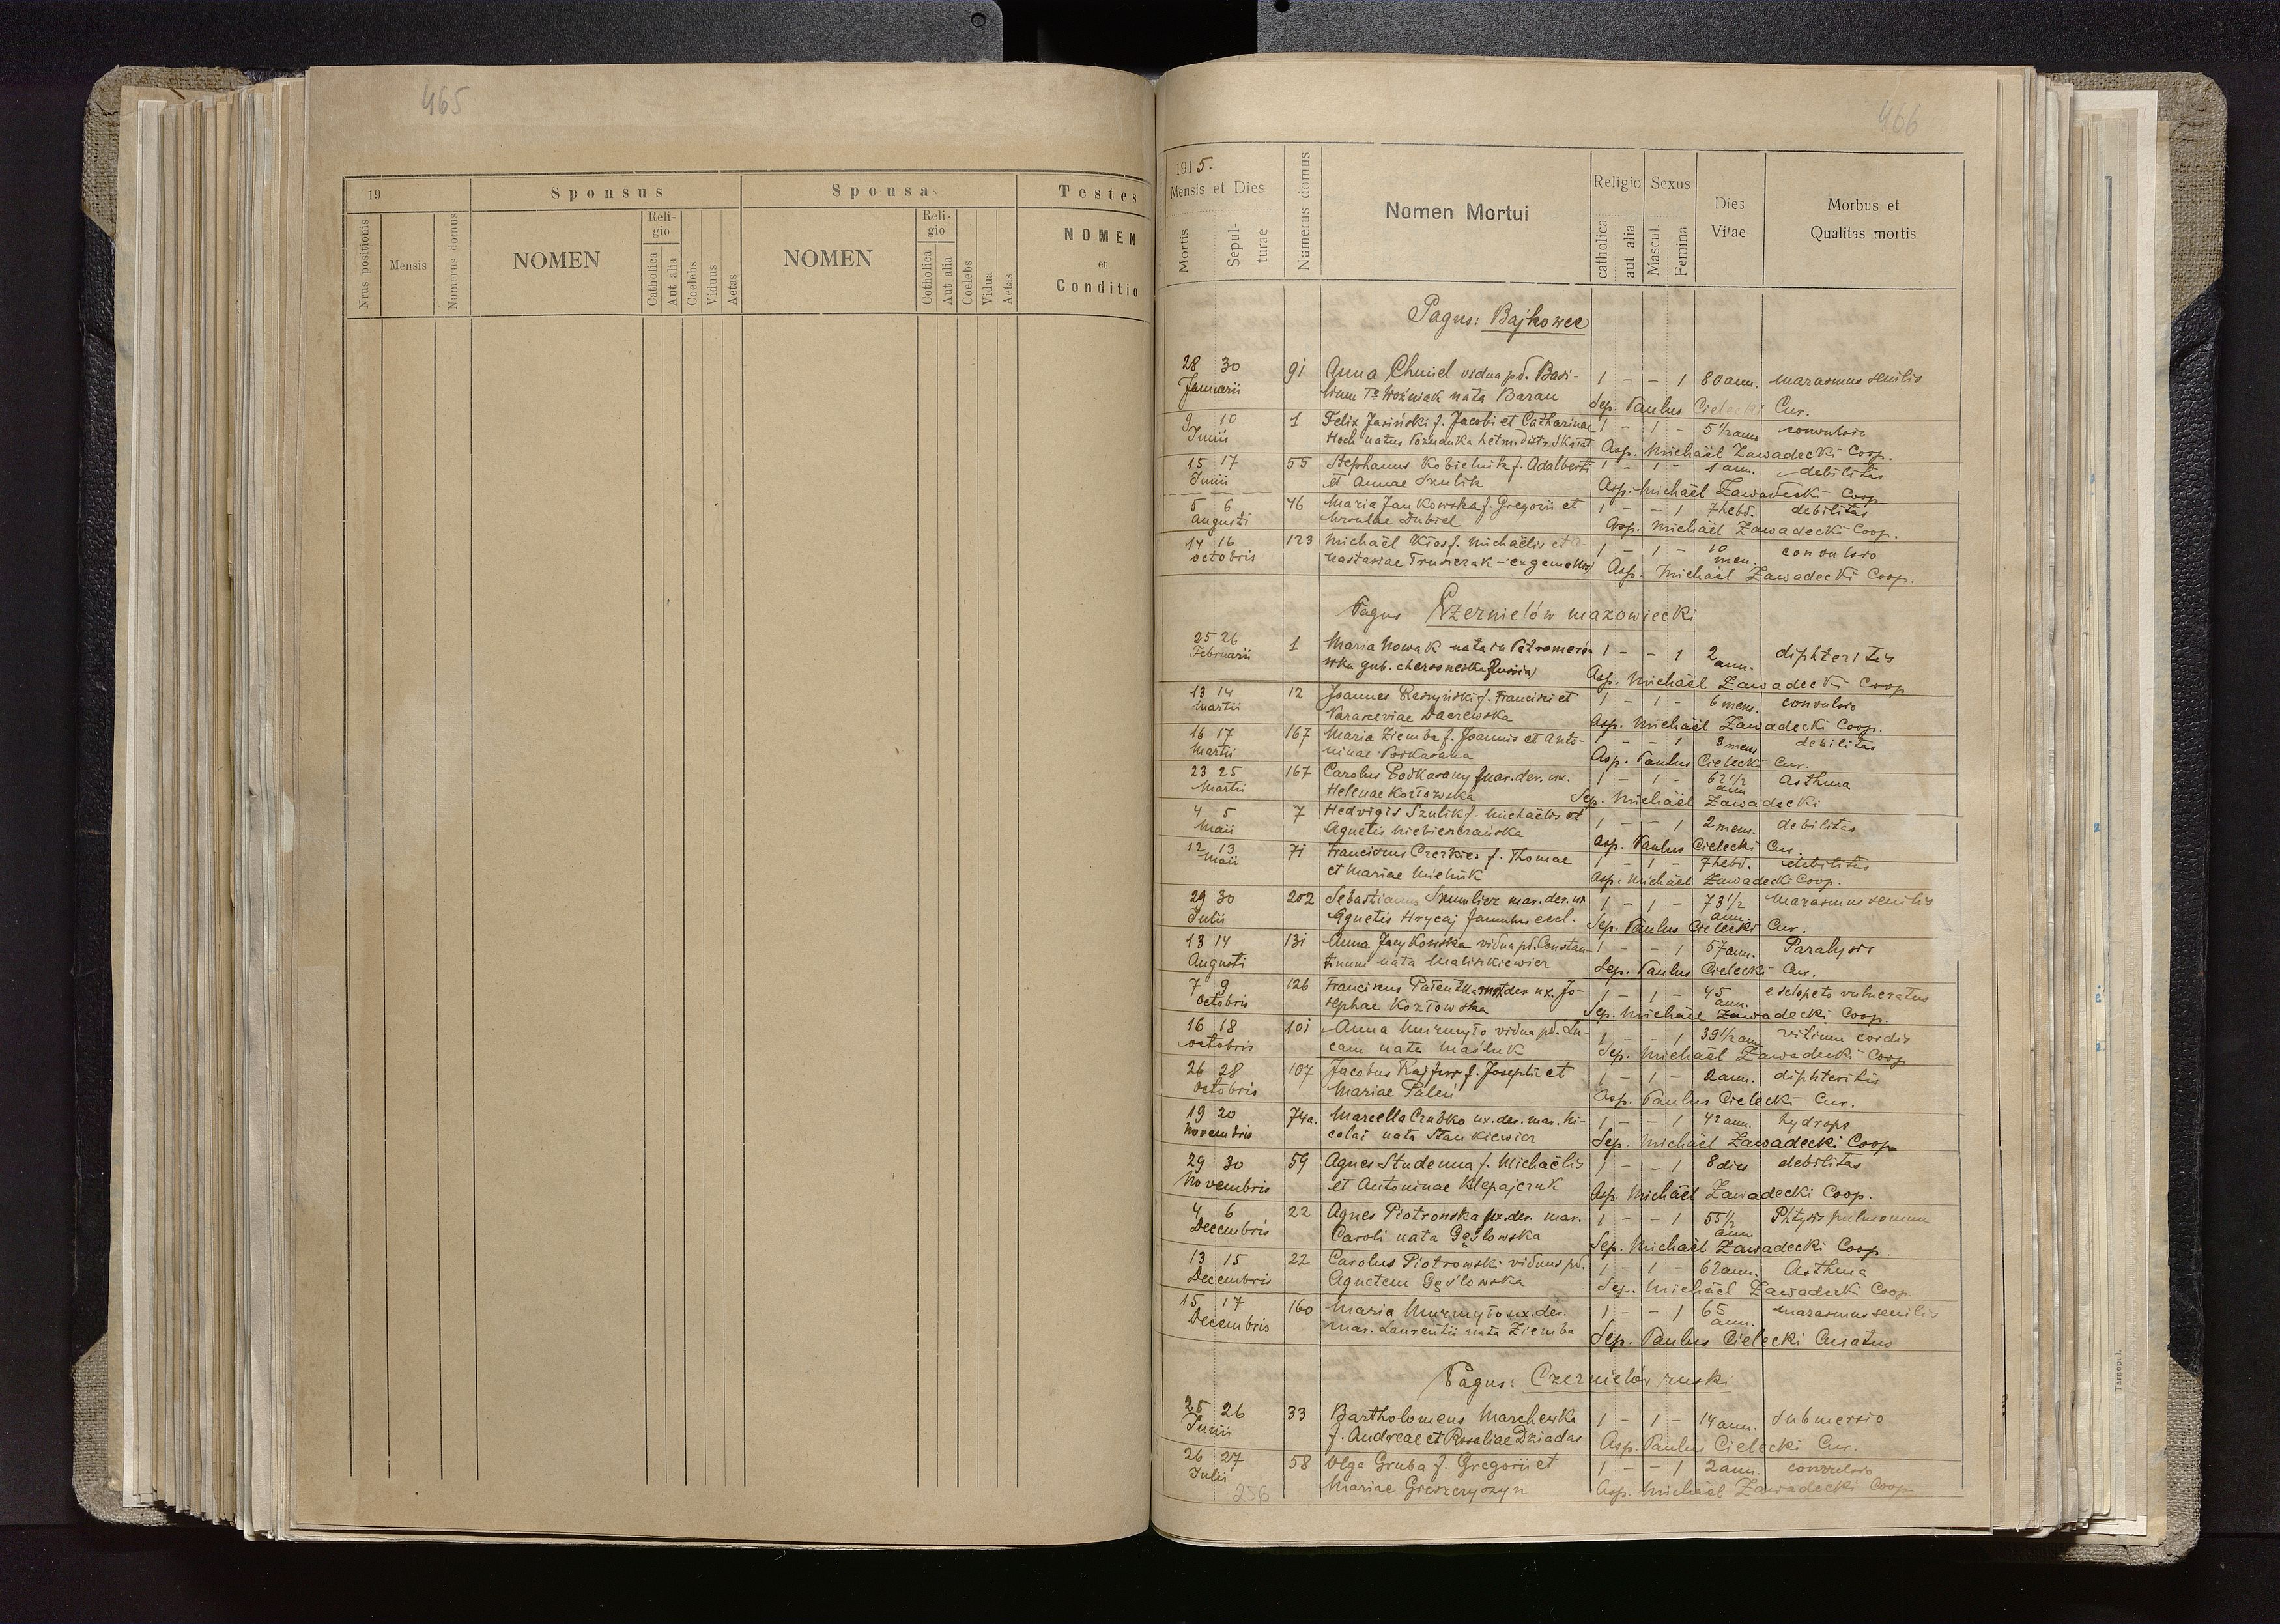 465
19
Sponsus
Sponsa
Testes
Nrus positionis
Mensis
Numerus domus
NOMEN
Religio
Catholica
Aut alia
Coelebs
Viduus
Aetas
NOMEN
Religio
Cotholica
Aut alia
Coelebs
Vidua
Aetas
NOMEN
et
Conditio
466
1915.
Mensis et Dies
Mortis
Sepulturae
Numerus domus
Nomen Mortui
Religio
catholica
aut alia
Sexus
Mascul.
Femina
Dies
Vitae
Morbus et
Qualitas mortis
Pagus: Bajkowce
28 30 91 Anna Chmiel vidua pd. Basi- 1 - - 1 80 ann. marasmus senilis
Januarii lium Tº Woźniak nata Baran Sep. Paulus Cielecki Cur.
9 10 1 Felix Jasiński f. Jacobi et Catharinae 1 - 1 - 5 1/2 ann convulsio
Junii Hoch natus Poznanka hetm. distr. Skałat Asp. Michaël Zawadecki Coop.
15 17 55 Stephanus Kobielnik f. Adalberti 1 - 1 - 1 ann. debilitas
Junii et Annae Szulik Asp. Michaël Zawadecki Coop
5 6 46 Maria Jankowska f. Gregorii et 1 - - 1 7 hebd. debilitas
Augusti Ursulae Dubiel Asp. Michaël Zawadecki Coop.
14 16 123 Michaël Kłos f. Michaëlis et 1 - 1 - 10 men. convulsio
octobris nastasiae Trusierak - ex gemellis) Asp. Michaël Zawadecki Coop.
Pagus Czernielów mazowiecki
25 26 1 Maria Nowak nata in 1 - - 1 2 ann. diphteritis
Februarii gub. chersoneska (Russia) Asp. Michaël Zawadecki Coop
13 14 12 Joannes Reszyński f. Francisci et 1 - 1 - 6 mens. convulsio
Martii Paraceviae Daczewska Asp. Michaël Zawadecki Coop.
16 17 167 Maria Ziemba f. Joannis et Anto- 1 - - 1 9 mens debilitas
Martii ninae Podkasana Asp. Paulus Cielecki Cur.
23 25 167 Carolus Podkasany mar. der. ux. 1 - 1 - 62 1/2 ann Asthma
Martii Helenae Kozłowska Sep. Michaël Zawadecki
4 5 7 Hedvigis Szulik f. Michaëlis et 1 - - 1 2 mens. debilitas
Maii Agnetis Niebieszczańska Asp. Paulus Cielecki Cur.
12 13 71 Franciscus Czerkies f. Thomae 1 - 1 - 7 hebd. debilitas
Maii et Mariae Michnik Asp. Michaël Zawadecki Coop.
29 30 202 Sebastianus Szmulicz mar. der. ux 1 - 1 - 73 1/2 ann. Marasmus senilis
Julii Agnetis Hrycaj famulus eccl. Sep. Paulus Cielecki Cur.
13 14 131 Anna Jacykowska vidua pd. Constan- 1 - - 1 57 ann. Paralysis
Augusti tinum nata Maliszkiewicz Sep. Paulus Cielecki Cur.
7 9 126 Franciscus Patentka mar. der ux. Jo- 1 - 1 - 45 ann. e sclopeto vulneratus
Octobris sephae Kozłowska Sep. Michaël Zawadecki Coop.
16 18 101 Anna Murmyło vidua pd. Lu- 1 - - 1 39 1/2 ann vitium cordis
octobris cam nata Maśluk Sep. Michaël Zawadecki Coop
26 28 107 Jacobus Rajfur f. Josephi et 1 - 1 - 2 ann. diphteritis
Octobris Mariae Paleń Asp. Paulus Cielecki Cur.
19 20 74a. Marcella Czubko ux. der. mar. Ni- 1 - - 1 42 ann. hydrops
Novembris colai nata Stankiewicz Sep. Michaël Zawadecki Coop
29 30 59 Agnes Studenna f. Michaëlis 1 - - 1 8 dies debilitas
Novembris et Antoninae Klepajczuk Asp. Michaël Zawadecki Coop.
4 6 22 Agnes Piotrowska ux. der. mar. 1 - - 1 55 1/2 ann Phtysis pulmonum
Decembris Caroli nata Gęslowska Sep. Michaël Zawadecki Coop.
13 15 22 Carolus Piotrowski viduus pd. 1 - 1 - 62 ann. Asthma
Decembris Agnetem Gęślowska Sep. Michaël Zawadecki Coop.
15 17 160 Maria Murmyło ux. der. 1 - - 1 65 ann. marasmus senilis
Decembris mar. Laurentii nata Ziemba Sep. Paulus Cielecki Curatus
Pagus: Czernielów ruski
25 26 33 Bartholomeus Marchewka 1 - 1 - 14 ann. submersio
Junii f. Andreae et Rosaliae Dziadas Asp. Paulus Cielecki Cur.
26 27 58 Olga Gruba f. Gregorii et 1 - - 1 2 ann. convulsio
Julii Mariae Greszczyszyn Asp. Michaël Zawadecki Coop
256